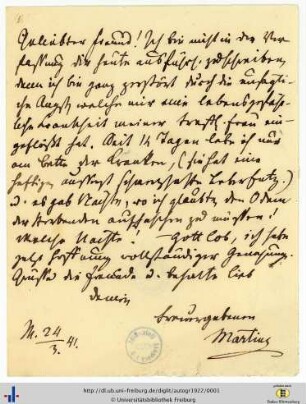 Geliebter Freund! Ich bin nicht in der Ver-
fassung dir heute ausführl. zu schreiben,
denn ich bin ganz zerstört durch die unsägli-
che Angst welche mir eine lebensgefähr-
liche Krankheit meiner trefl. Frau ein-
geflößt hat. Seit 14 Tagen lebe ich nur
am Bette der Kranken, (sie hat eine
heftige, äusserst schmerzhafte Leberentz.)
u. es gab Nächte, wo ich glaubte den Odem
der sterbenden aufhaschen zu müssen!
welche Nächte! Gott lob, ich habe
jetzt Hoffnung vollständiger Genesung.
Grüße die Freunde u. behalte lieb
deinen
treuergebenen
Martius
M. 24/3. 41.
http://dl.ub.uni-freiburg.de/diglit/autogr1922/0001
© Universitätsbibliothek Freiburg